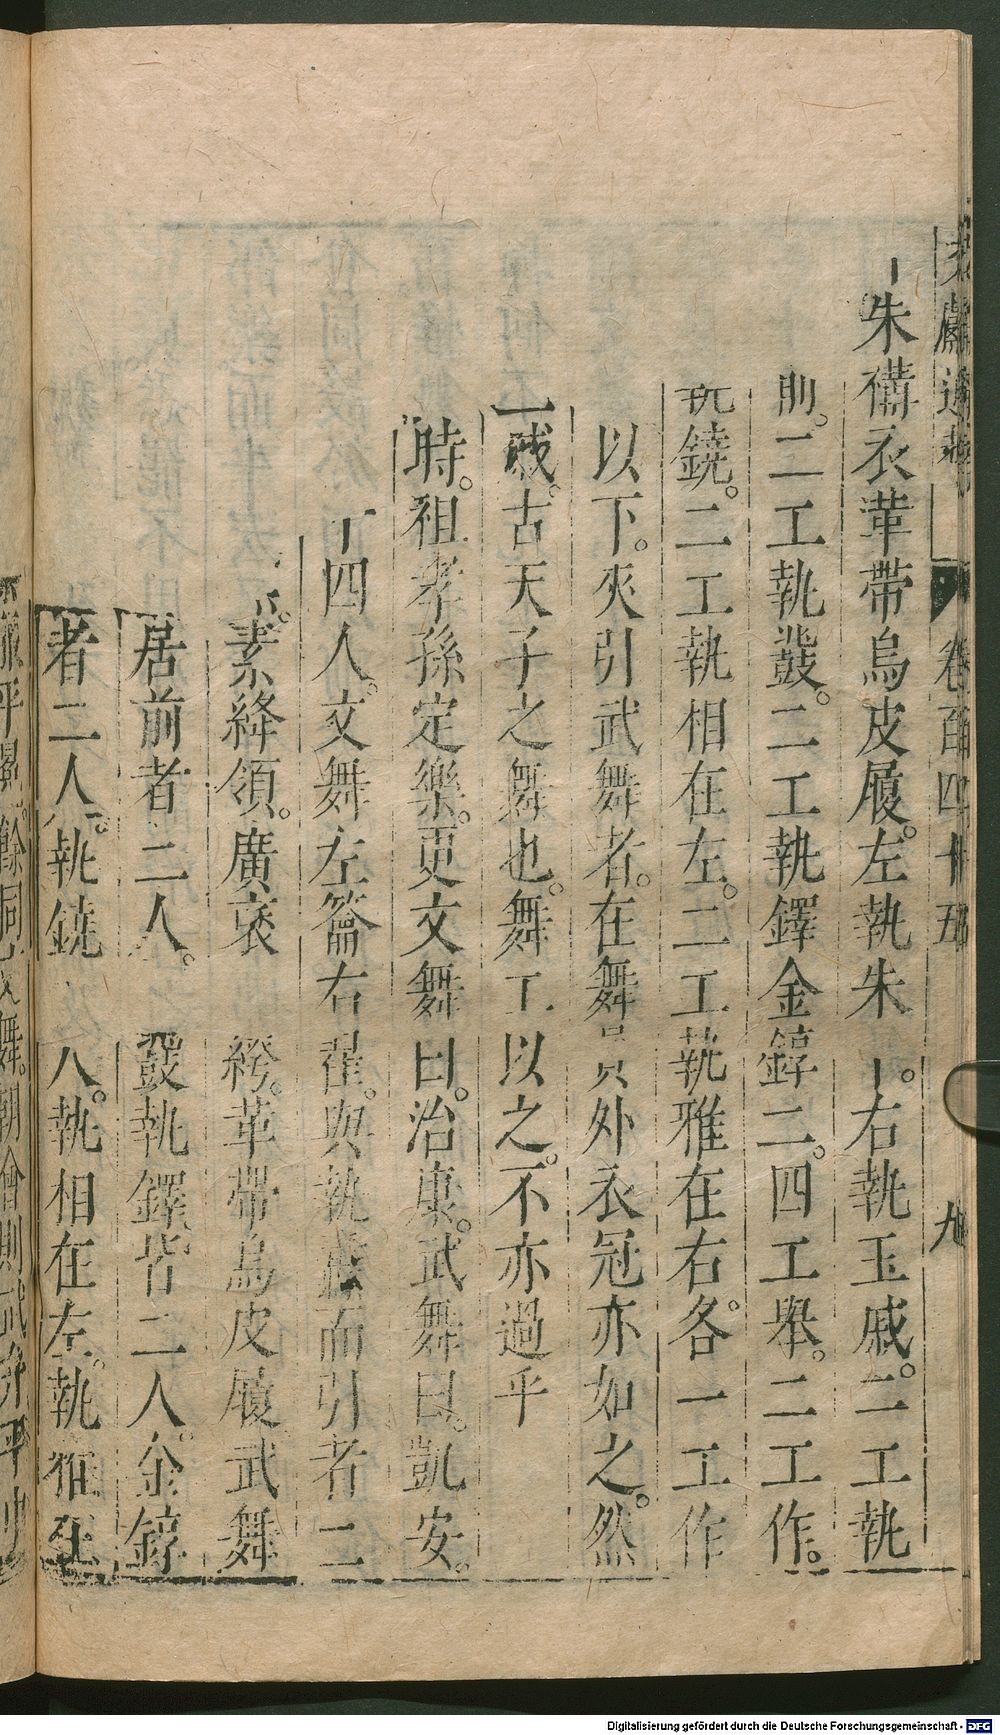 卷百四十五
九
朱褠衣革帶烏皮履。左執朱
。右執玉戚。二工執
二工執鼗。二工執鐸金錞二。四工舉。二工作。
鐃。二工執相在左。二工執雅在右。各一工作
以下。夾引武舞者。在舞外衣冠亦如之。然
戚。古天子之舞也。舞工以之。不亦過乎
時。祖孝孫定樂。更文舞曰。治康。武舞曰。凱安。
四人。文舞左籥右翟。與執纛而引者二
素絳領。廣袞
袴。革帶烏皮履武舞
居前者二人。
鼗執鐸皆二人。金錞
者二人。執鐃
執相在左。執在
Digitalisierung gefördert durch die Deutsche Forschungsgemeinschaft - DFG